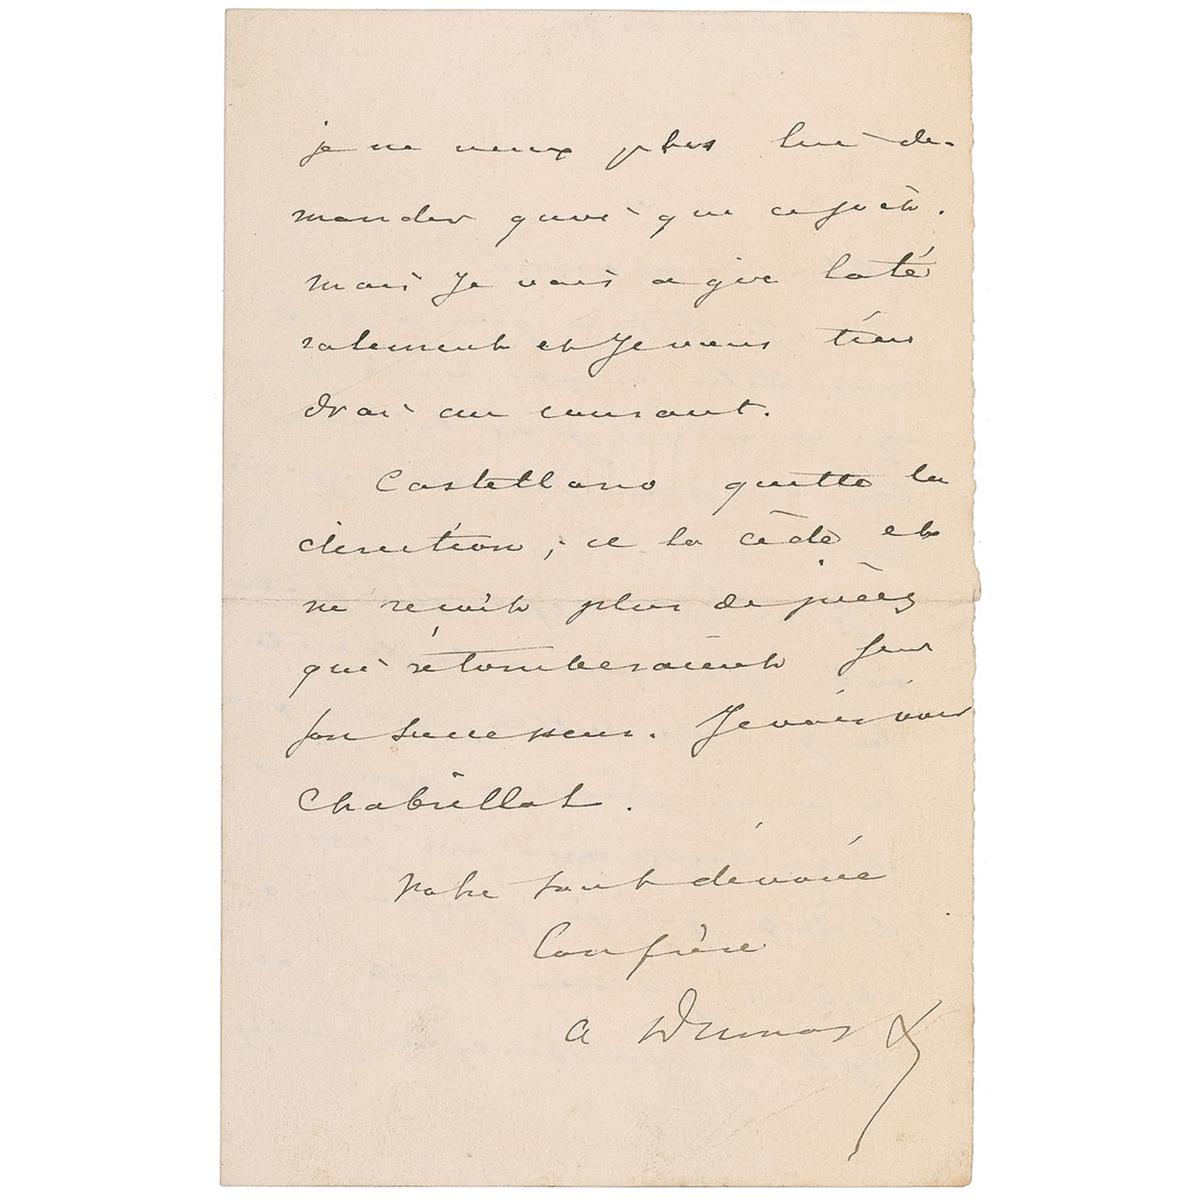 je ne veux plus lui de-
mander quoi que ce soit.
mais Je vais agir laté
ralement et Je vous tien
drai au courant.
Castellano quitte la
direction, il la cède et
ne reçoit plus de pièces
qui retomberaient sur
son successeur. Je vais voir
Chabrillat.
Votre tout dévoué
Confrère
A Dumas f